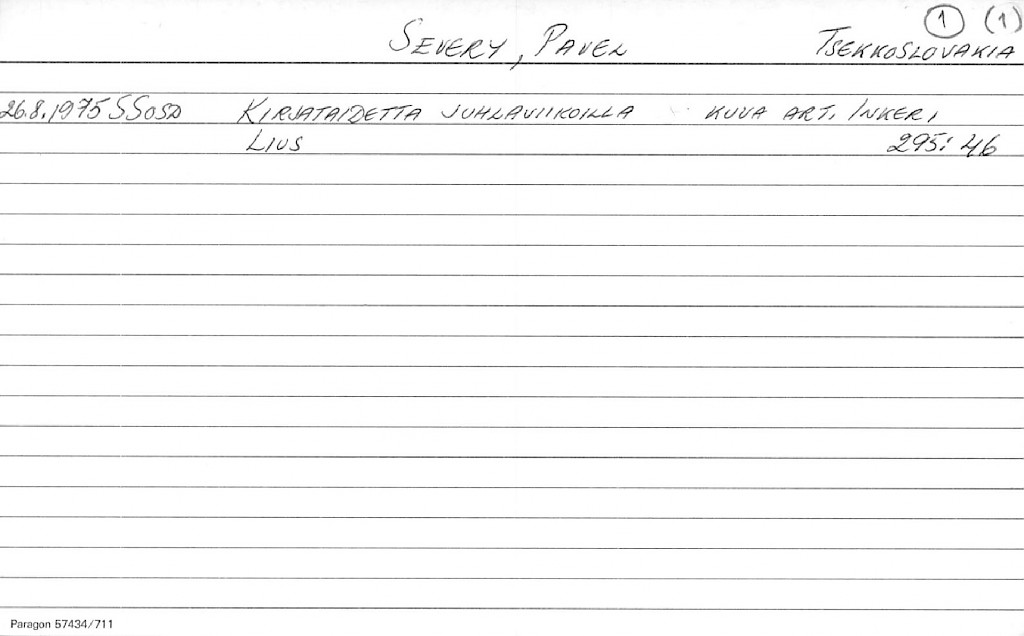 ① (1)
SEVERY, PAVEL TSEKKOSLOVAKIA
26.8.1975 SSOSD KIRJATAIDETTA JUHLAVIIKOILLA KUVA ART. INKERI
LIUS 295: 46
Paragon 57434/711